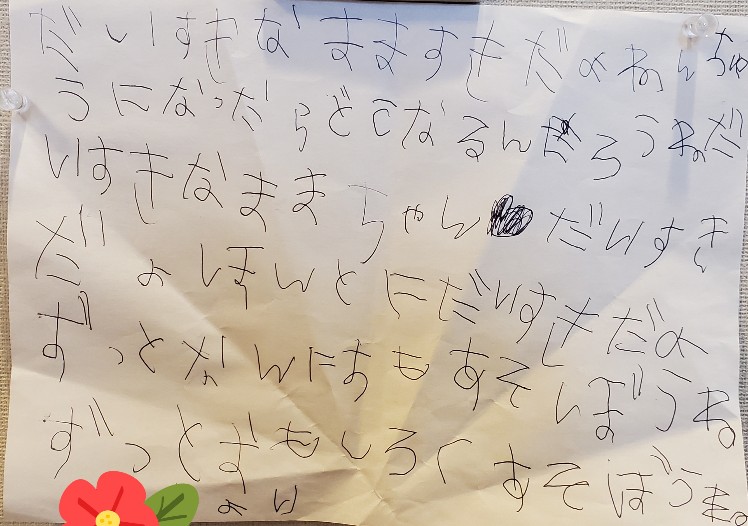 だいすきなまますきだよねんちゅ
うになったらどこなるんだろうねだ
いすきなままちゃんだいすき
だよほんとにだいすきだよ
ずっとなんにもあそぼうね
ずっとおもしろくあそぼうね